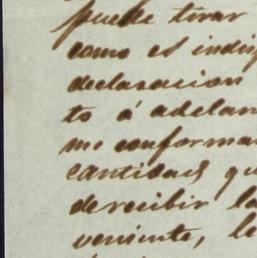 puede tirar
como es indis
declaracion
to á adelan
me conforma
cantidad qu
de recibir la
veniente, le